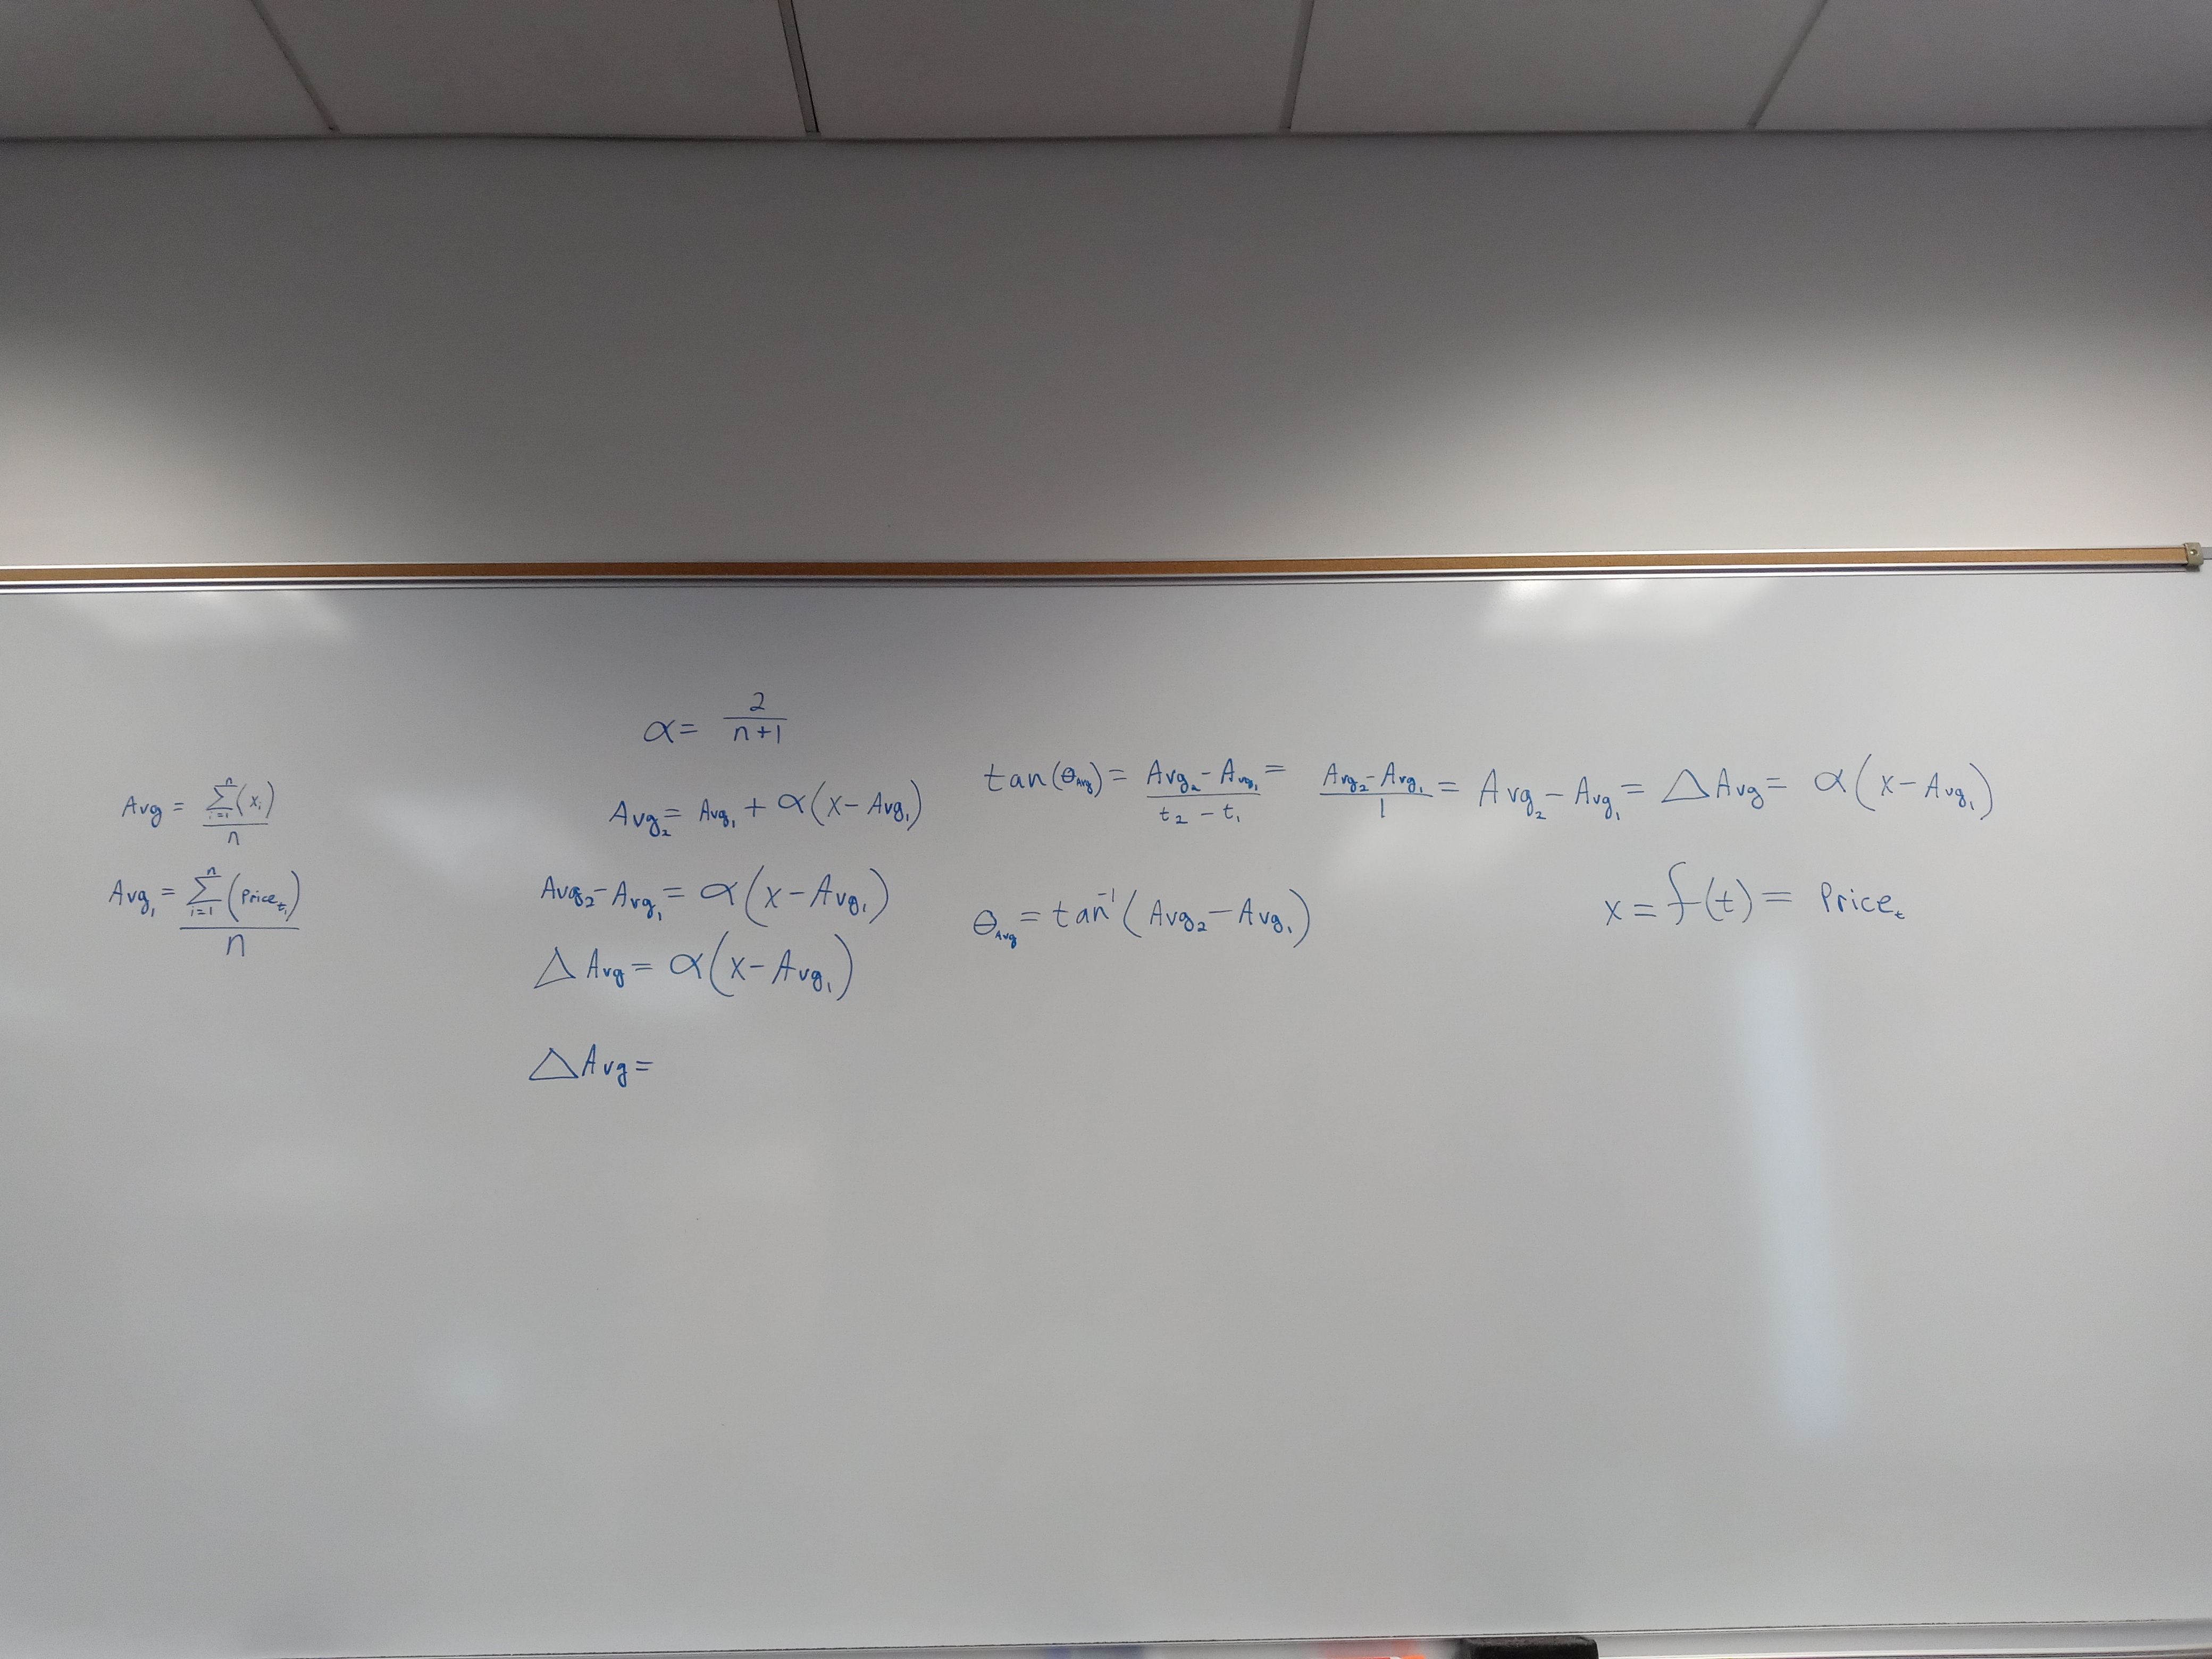 Avg = Σⁿᵢ₌₁(xᵢ) / n
Avg₁ = Σⁿᵢ₌₁(Price_tᵢ) / n
α = 2 / (n+1)
Avg₂ = Avg₁ + α(x - Avg₁)
Avg₂ - Avg₁ = α(x - Avg₁)
Δ Avg = α(x - Avg₁)
Δ Avg =
tan(θ_Avg) = (Avg₂ - Avg₁) / (t₂ - t₁) = (Avg₂ - Avg₁) / 1 = Avg₂ - Avg₁ = Δ Avg = α(x - Avg₁)
θ_Avg = tan⁻¹(Avg₂ - Avg₁)
x = f(t) = Price_t